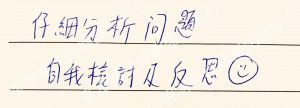 仔細分析问題
自我檢討及反思☺